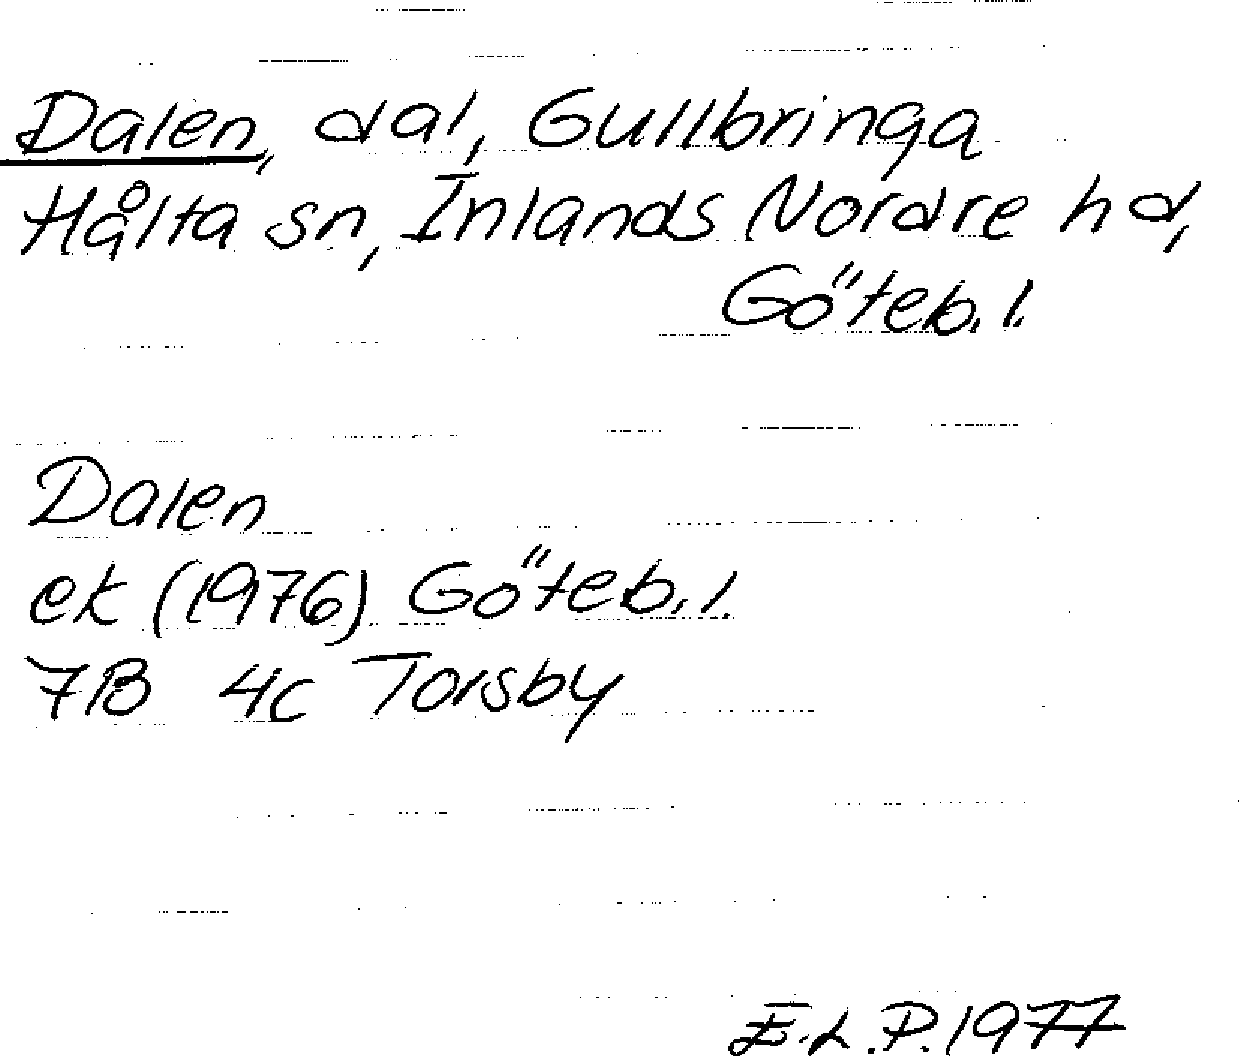 Dalen, dal, Gullbringa
Hålta sn, Inlands Nordre hd,
Göteb. l.
Dalen
ek (1976) Göteb. l.
7B 4c Torsby
E.L.P. 1977